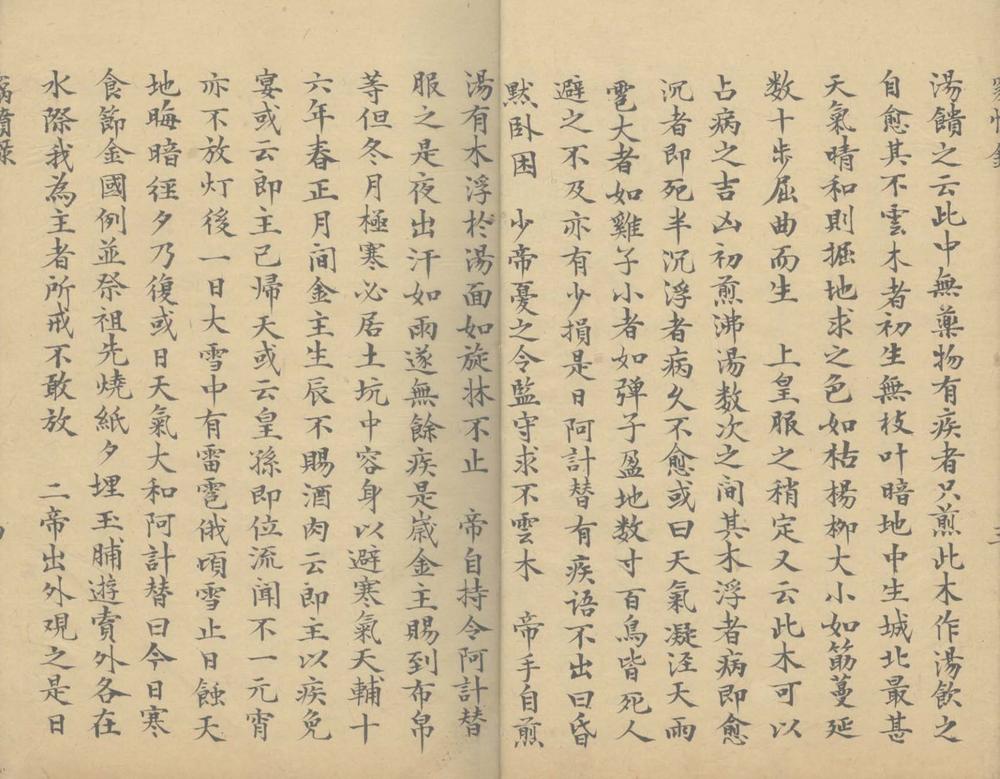 湯饋之云此中無藥物有疾者只煎此木作湯飲之
自愈其不雲木者初生無枝叶暗地中生城北最甚
天氣晴和則掘地求之色如枯楊柳大小如筋蔓延
数十步屈曲而生　上皇服之稍定又云此木可以
占病之吉凶初煎沸湯数次之間其木浮者病即愈
沉者即死半沉浮者病久不愈或曰天氣凝泩天雨
雹大者如雞子小者如弹子盈地数寸百鳥皆死人
避之不及亦有少損是日阿計替有疾语不出曰昏
默卧困　少帝憂之令監守求不雲木　帝手自煎
湯有木浮於湯面如旋抹不止　帝自持令阿計替
服之是夜出汗如雨遂無餘疾是嵗金主賜到布帛
等但冬月極寒必居土坑中容身以避寒氣天輔十
六年春正月间金主生辰不賜酒肉云即主以疾免
宴或云即主已帰天或云皇孫即位流闻不一元宵
亦不放灯後一日大雪中有雷雹俄頃雪止日蝕天
地晦暗经夕乃復或日天氣大和阿計替曰今日寒
食節金國例並祭祖先燒紙夕埋玉脯遊賣外各在
水際我為主者所戒不敢放　二帝出外观之是日